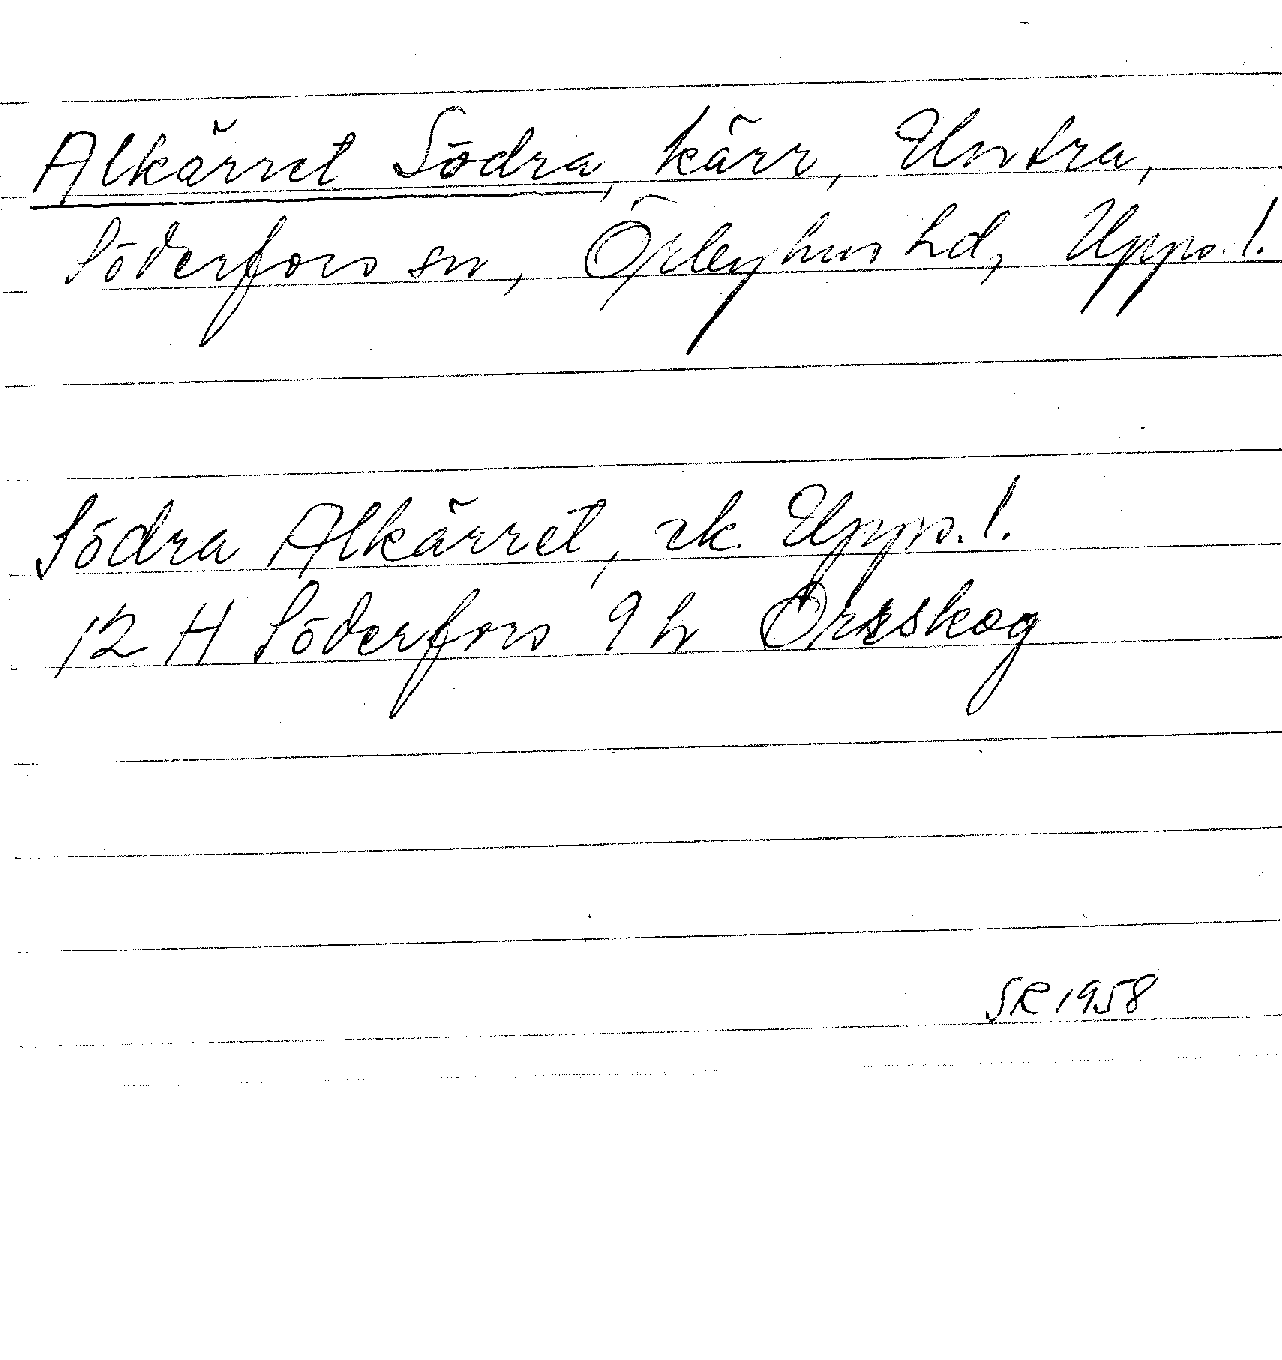 Alkärret Södra, kärr, Untra,
Söderfors sn, Örbyhus hd, Upps. l.
Södra Alkärret, ek. Upps. l.
12 H Söderfors 9 h Orrskog
SR 1958